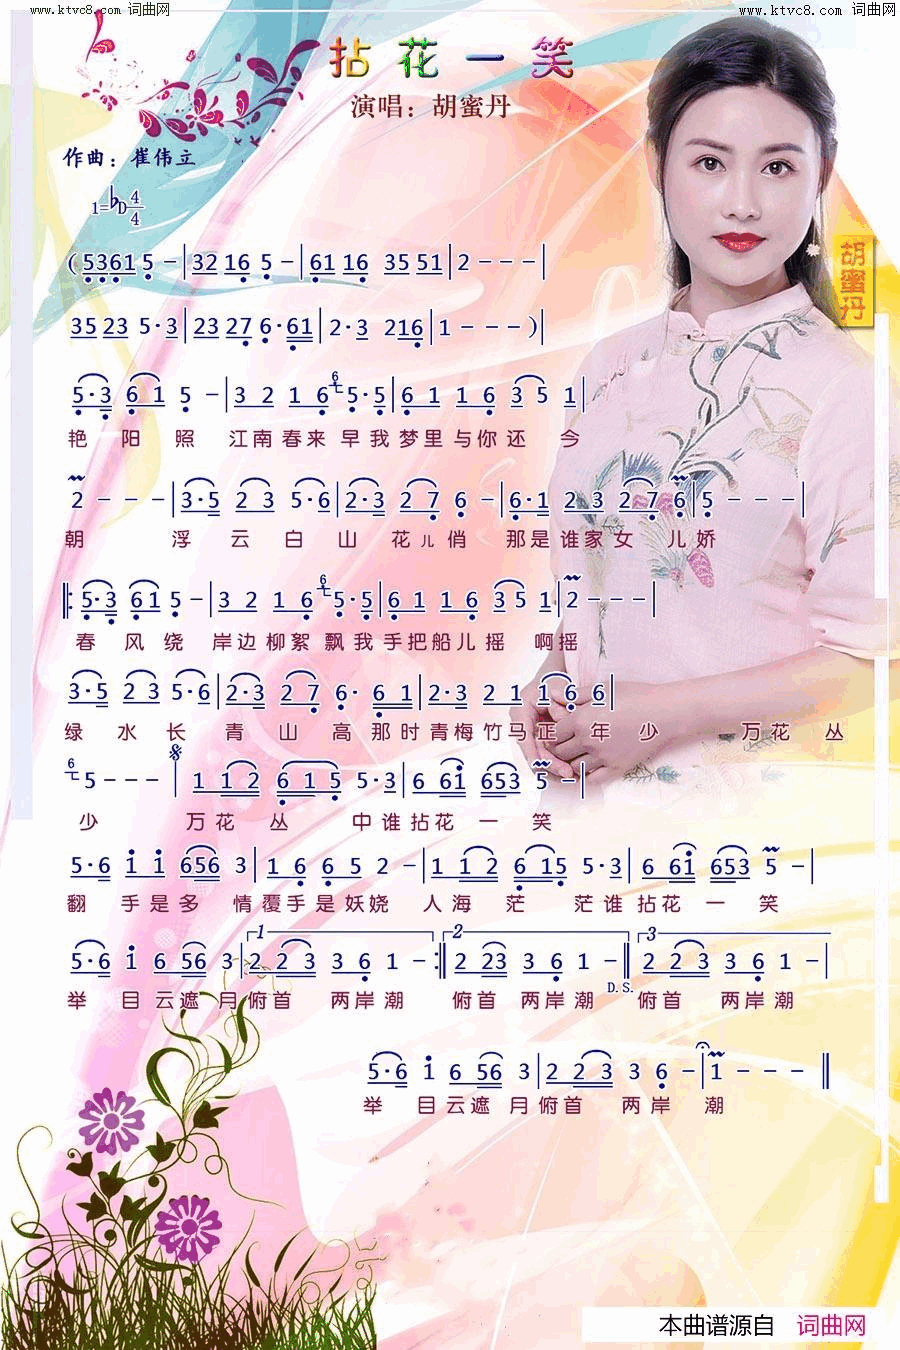 www.ktvc8.com 词曲网 www.ktvc8.com 词曲网
拈花一笑
演唱：胡蜜丹
作曲：崔伟立
1=♭D 4/4
胡蜜丹
(5361 5 -|32 16 5 -|61 16 35 51|2 - - -|
35 23 5·3|23 27 6·61|2·3 216|1 - - -)|
5·3 61 5 -|3 2 1 6 5·5|6 1 1 6 3 5 1|
艳 阳 照 江南春来 早我梦里与你还 今
2 - - -|3·5 2 3 5·6|2·3 2 7 6 -|6·1 2 3 2 7 6|5 - - -|
朝 浮 云 白 山 花儿俏 那是谁家女 儿娇
‖:5·3 61 5 -|3 2 1 6 5·5|6 1 1 6 3 5 1|2 - - -|
春 风绕 岸边柳絮飘我手把船儿摇 啊摇
3·5 2 3 5·6|2·3 2 7 6· 6 1|2·3 2 1 1 6 6|
绿 水 长 青 山 高那时青梅竹马正 年 少 万花 丛
5 - - -|1 1 2 6 1 5 5·3|6 6i 653 5 -|
少 万花 丛 中谁拈花 一 笑
5·6 i i 656 3|1 6 6 5 2 -|1 1 2 6 15 5·3|6 6i 653 5 -|
翻 手是多 情覆手是妖娆 人海 茫 茫谁拈花 一 笑
5·6 i 6 56 3|1 2 2 3 3 6 1 -:‖2 2 23 3 6 1 -‖3 2 2 3 3 6 1 -|
举 目云遮 月俯首 两岸潮 俯首 两岸潮 D.S. 俯首 两岸潮
5·6 i 6 56 3|2 2 3 3 6 -|1 - - -‖
举 目云遮 月俯首 两岸 潮
本曲谱源自 词曲网